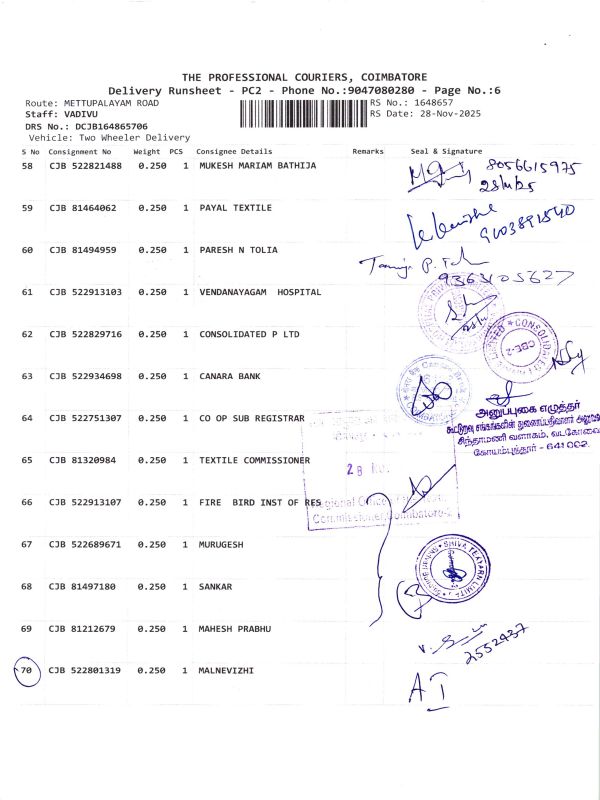 THE PROFESSIONAL COURIERS, COIMBATORE
Delivery Runsheet - PC2 - Phone No.:9047080280 - Page No.:6
Route: METTUPALAYAM ROAD
RS No.: 1648657
Staff: VADIVU
RS Date: 28-Nov-2025
DRS No.: DCJB164865706
Vehicle: Two Wheeler Delivery
S No Consignment No Weight PCS Consignee Details Remarks Seal & Signature
58 CJB 522821488 0.250 1 MUKESH MARIAM BATHIJA
8056615975
28/11/25
59 CJB 81464062 0.250 1 PAYAL TEXTILE
9003891540
60 CJB 81494959 0.250 1 PARESH N TOLIA
9363105627
61 CJB 522913103 0.250 1 VENDANAYAGAM HOSPITAL
62 CJB 522829716 0.250 1 CONSOLIDATED P LTD
CONSOLIDATED
CBE-2
63 CJB 522934698 0.250 1 CANARA BANK
Canara Bank
64 CJB 522751307 0.250 1 CO OP SUB REGISTRAR
அனுப்புகை எழுத்தர்
கூட்டுறவு சங்கங்களின் துணைப்பதிவாளர்
சிந்தாமணி வளாகம், வடகோவை
கோயம்புத்தூர் - 641 002.
65 CJB 81320984 0.250 1 TEXTILE COMMISSIONER
28 NO
66 CJB 522913107 0.250 1 FIRE BIRD INST OF RES
Regional Office of
Commissioner, Coimbatore
67 CJB 522689671 0.250 1 MURUGESH
SHIVA TEXYARN LIMITED
68 CJB 81497180 0.250 1 SANKAR
69 CJB 81212679 0.250 1 MAHESH PRABHU
2552937
70 CJB 522801319 0.250 1 MALNEVIZHI